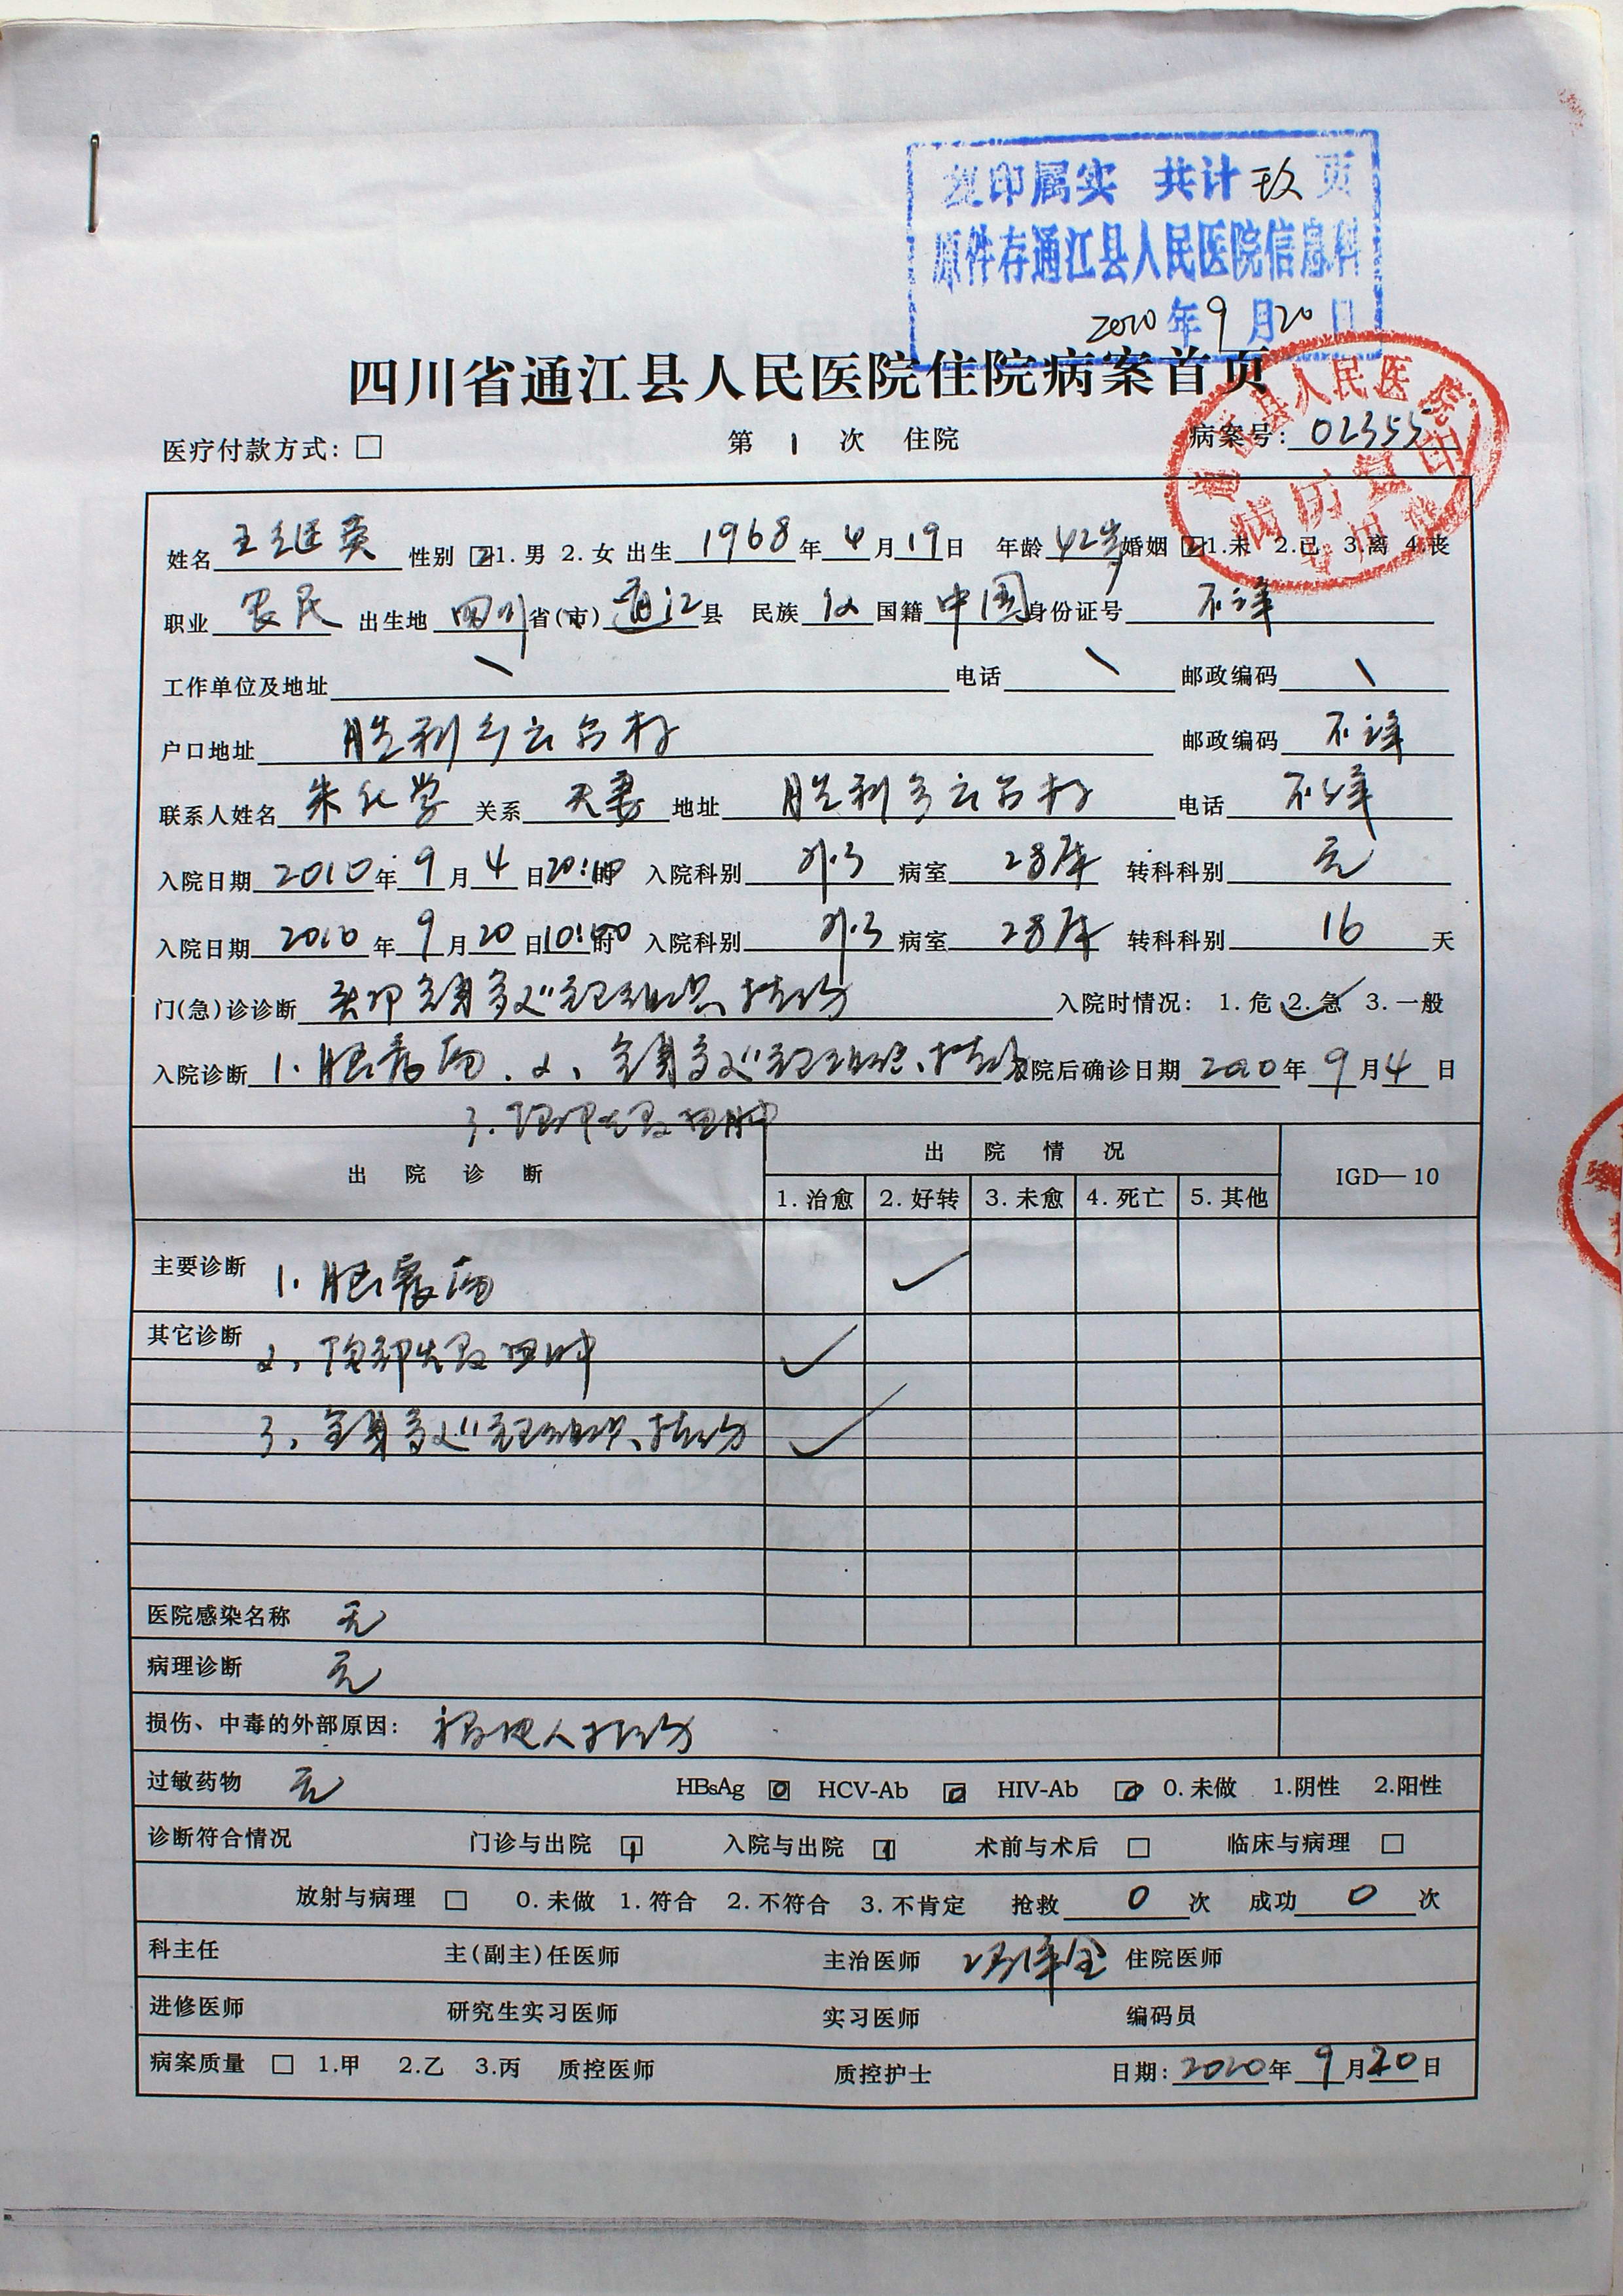 复印属实 共计 玖 页
原件存通江县人民医院信息科
2010 年 9 月 20 日
四川省通江县人民医院住院病案首页
通江县人民医院
病历复印
专用章
医疗付款方式: □ 第 1 次 住院 病案号: 02355
姓名 王继英 性别 2 1. 男 2. 女 出生 1968 年 4 月 19 日 年龄 42岁 婚姻 2 1.未 2.已 3.离 4.丧
职业 农民 出生地 四川 省(市) 通江 县 民族 汉 国籍 中国 身份证号 不详
工作单位及地址 \ 电话 \ 邮政编码 \
户口地址 胜利乡云台村 邮政编码 不详
联系人姓名 朱化学 关系 夫妻 地址 胜利乡云台村 电话 不详
入院日期 2010 年 9 月 4 日 时 入院科别 外3 病室 28床 转科科别 无
入院日期 2010 年 9 月 20 日 10:00 时 入院科别 外3 病室 28床 转科科别 16 天
门(急)诊诊断 头部全身多处软组织挫伤 入院时情况: 1. 危 2. 急 ✓ 3. 一般
入院诊断 1. 脑震荡. 2、全身多处软组织挫伤 院后确诊日期 2010 年 9 月 4 日
3. 顶部头皮血肿
出 院 诊 断 出 院 情 况 IGD—10
1. 治愈 2. 好转 3. 未愈 4. 死亡 5. 其他
主要诊断 1. 脑震荡 ✓
其它诊断 2、顶部头皮血肿 ✓
3、全身多处软组织挫伤 ✓
医院感染名称 无
病理诊断 无
损伤、中毒的外部原因: 被他人打伤
过敏药物 无 HBsAg 0 HCV-Ab 0 HIV-Ab 0 0. 未做 1.阴性 2.阳性
诊断符合情况 门诊与出院 1 入院与出院 1 术前与术后 □ 临床与病理 □
放射与病理 □ 0. 未做 1. 符合 2. 不符合 3. 不肯定 抢救 0 次 成功 0 次
科主任 主(副主)任医师 主治医师 住院医师
进修医师 研究生实习医师 实习医师 编码员
病案质量 □ 1.甲 2.乙 3.丙 质控医师 质控护士 日期: 2010 年 9 月 20 日